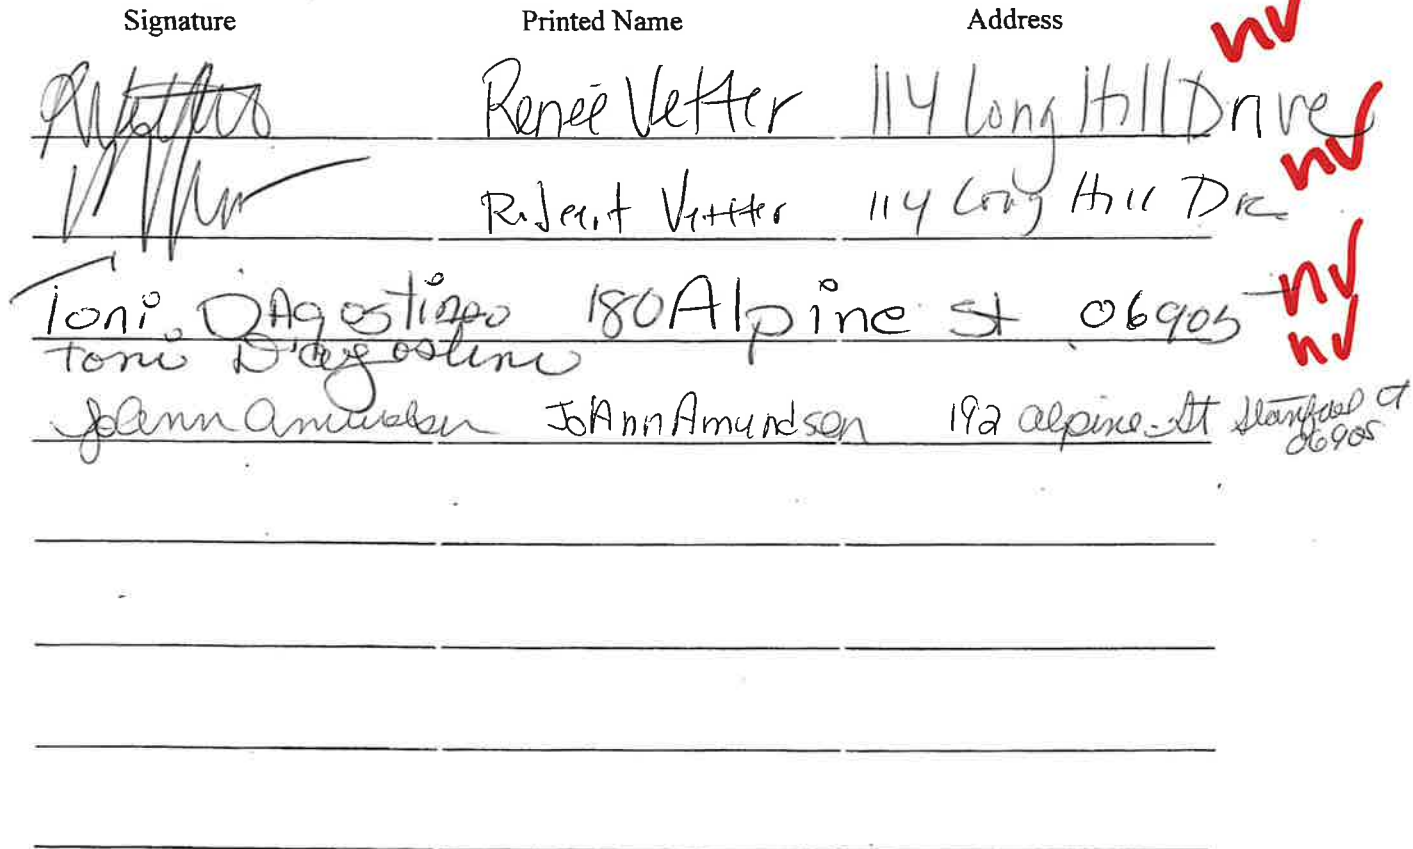 Signature Printed Name Address
nv
Reneé Vetter 114 Long Hill Drive
nv
Robert Vetter 114 Long Hill Dr.
Toni D'Agostino 180 Alpine St 06905 nv
Toni D'agostino nv
JoAnn Amundson JoAnn Amundson 192 Alpine St Stamford Ct
06905